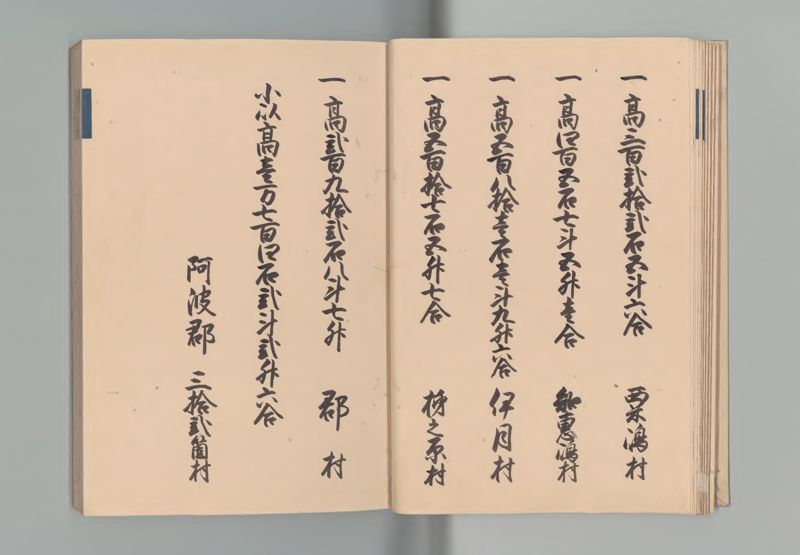 一高三百弐拾弐石五斗六合 粟嶋村
一高四百五石七斗五升壱合 知惠嶋村
一高五百八拾壱石壱斗九升六合 伊月村
一高五百拾七石五升七合 柿之原村
一高弐百九拾弐石八斗七升 郡村
小以高壱万七百四石弐斗弐升六合
阿波郡 三拾弐箇村